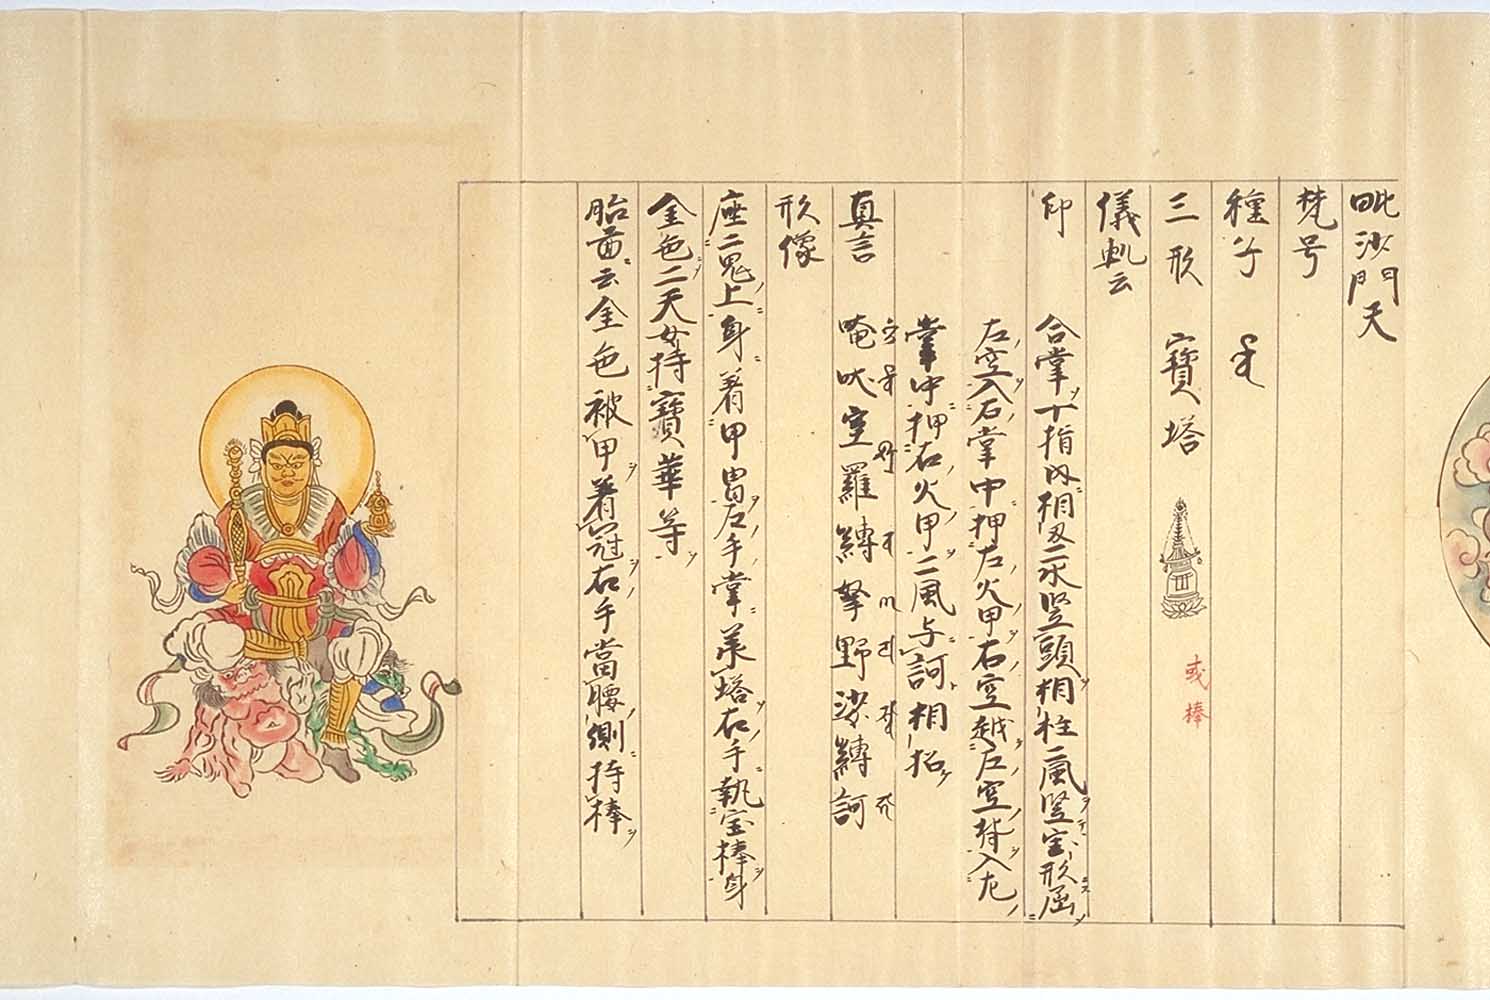 毗沙門天
梵号
種子
三形 寶塔 或棒
儀軌云
印 合掌十指内相叉二水竪頭相柱二風竪宝形屈
左空入右掌中押左火甲右空越左空背入左
掌中押右火甲二風与訶相招
真言 唵吠室羅縛拏野莎縛訶
形像
座二鬼上身着甲冑左手掌棊塔右手執宝棒身
金色二天女持寶華等
胎曼云金色被甲着冠右手當腰側持棒